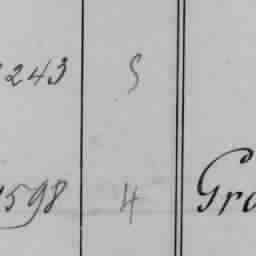 243 S
598 4 Gro